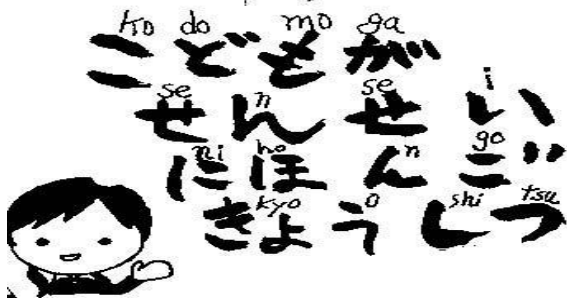 ko do mo ga
こどもが
se n se i
せんせい
ni ho n go
にほんご
kyo o shi tsu
きょうしつ